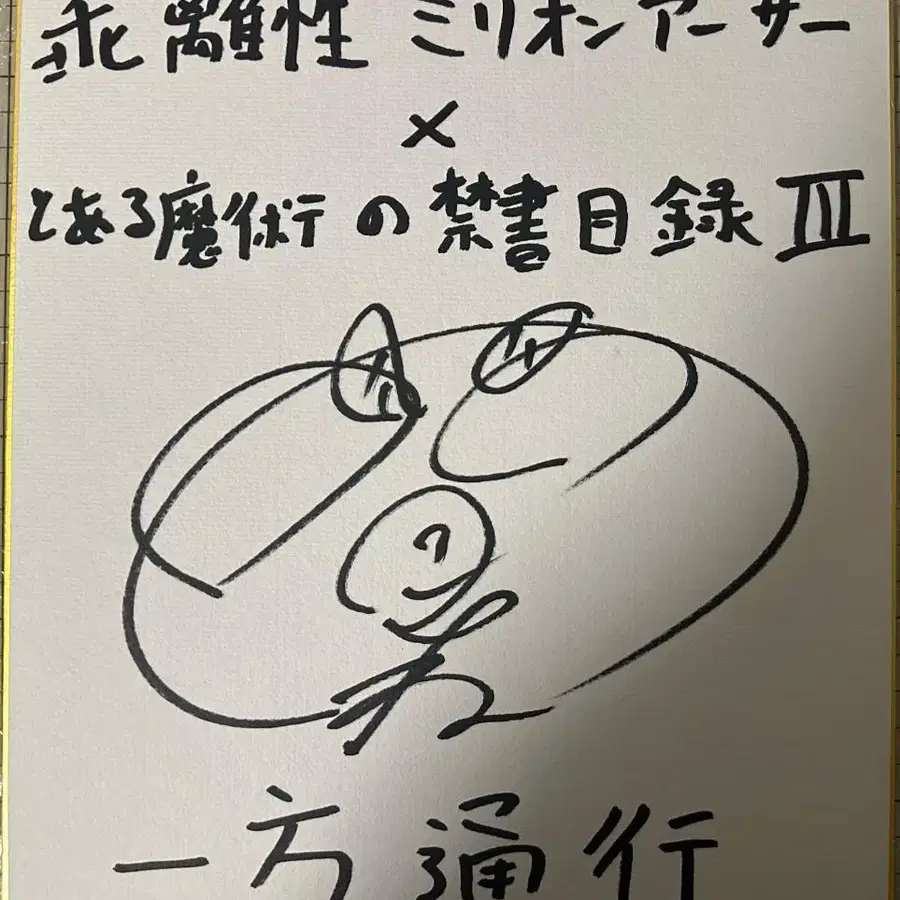 乖離性 ミリオンアーサー
×
とある魔術の禁書目録Ⅲ
一方通行